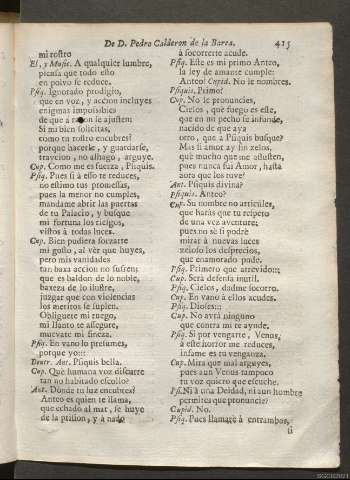 De D. Pedro Calderon de la Barca. 415
mi rostro
El, y Music. A qualquier lumbre,
piensa que todo esto
en polvo se reduce.
Psiq. Ignorado prodigio,
que en voz, y accion incluyes
enigmas impossibles
de que à razon se ajusten:
Si mi bien solicitas,
como tu rostro encubres?
porque hacerle, y guardarse,
traycion, no alhago, arguye.
Cup. Como me es fuerza, Psiquis.
Psiq. Pues si à esso te reduces,
no estimo tus promessas,
pues la menor no cumples,
mandame abrir las puertas
de tu Palacio, y busque
mi fortuna los riesgos,
vistos à todas luces.
Cup. Bien pudiera forzarte
mi gusto, al vèr que huyes,
pero mis vanidades
tan baxa accion no sufren;
que es baldon de lo noble,
baxeza de lo ilustre,
juzgar que con violencias
los meritos se suplen.
Obliguete mi ruego,
mi llanto te assegure,
muevate mi fineza.
Psiq. En vano lo presumes,
porque yo:::
Dentr. Ant. Psiquis bella.
Cup. Què humana voz discurre
tan no habitado escollo?
Ant. Donde tu luz encubres?
Anteo es quien te llama,
que echado al mar, se huye
de la prision, y à nado
à socorrerte acude.
Psiq. Este es mi primo Anteo,
la ley de amante cumple:
Anteo! Cupid. No le nombres.
Psiquis. Primo!
Cup. No le pronuncies,
Cielos, què fuego es este,
que en mi pecho se infunde,
nacido de que aya
otro, que à Psiquis busque?
Mas si amor ay sin zelos,
què mucho que me assusten,
pues nunca fui Amor, hasta
aora que los tuve?
Ant. Psiquis divina?
Psiquis. Anteo?
Cup. Su nombre no articules,
que haràs que tu respeto
de una vez aventure;
pues no sè si podrè
mirar à nuevas luces
zeloso los desprecios,
que enamorado pude.
Psiq. Primero que atrevido:::
Cup. Serà defensa inutil.
Psiq. Cielos, dadme socorro.
Cup. En vano à ellos acudes.
Psiq. Dioses:::
Cup. No avrà ninguno
que contra mi te ayude.
Psiq. Si por vengarte, Venus,
à este horror me reduces,
infame es tu venganza.
Cup. Mira que mal arguyes,
pues aun Venus tampoco
tu voz quiero que escuche.
Ps. Ni à una Deidad, ni aun hombre
permites que pronuncie?
Cupid. No.
Psiq. Pues llamarè à entrambos,
si